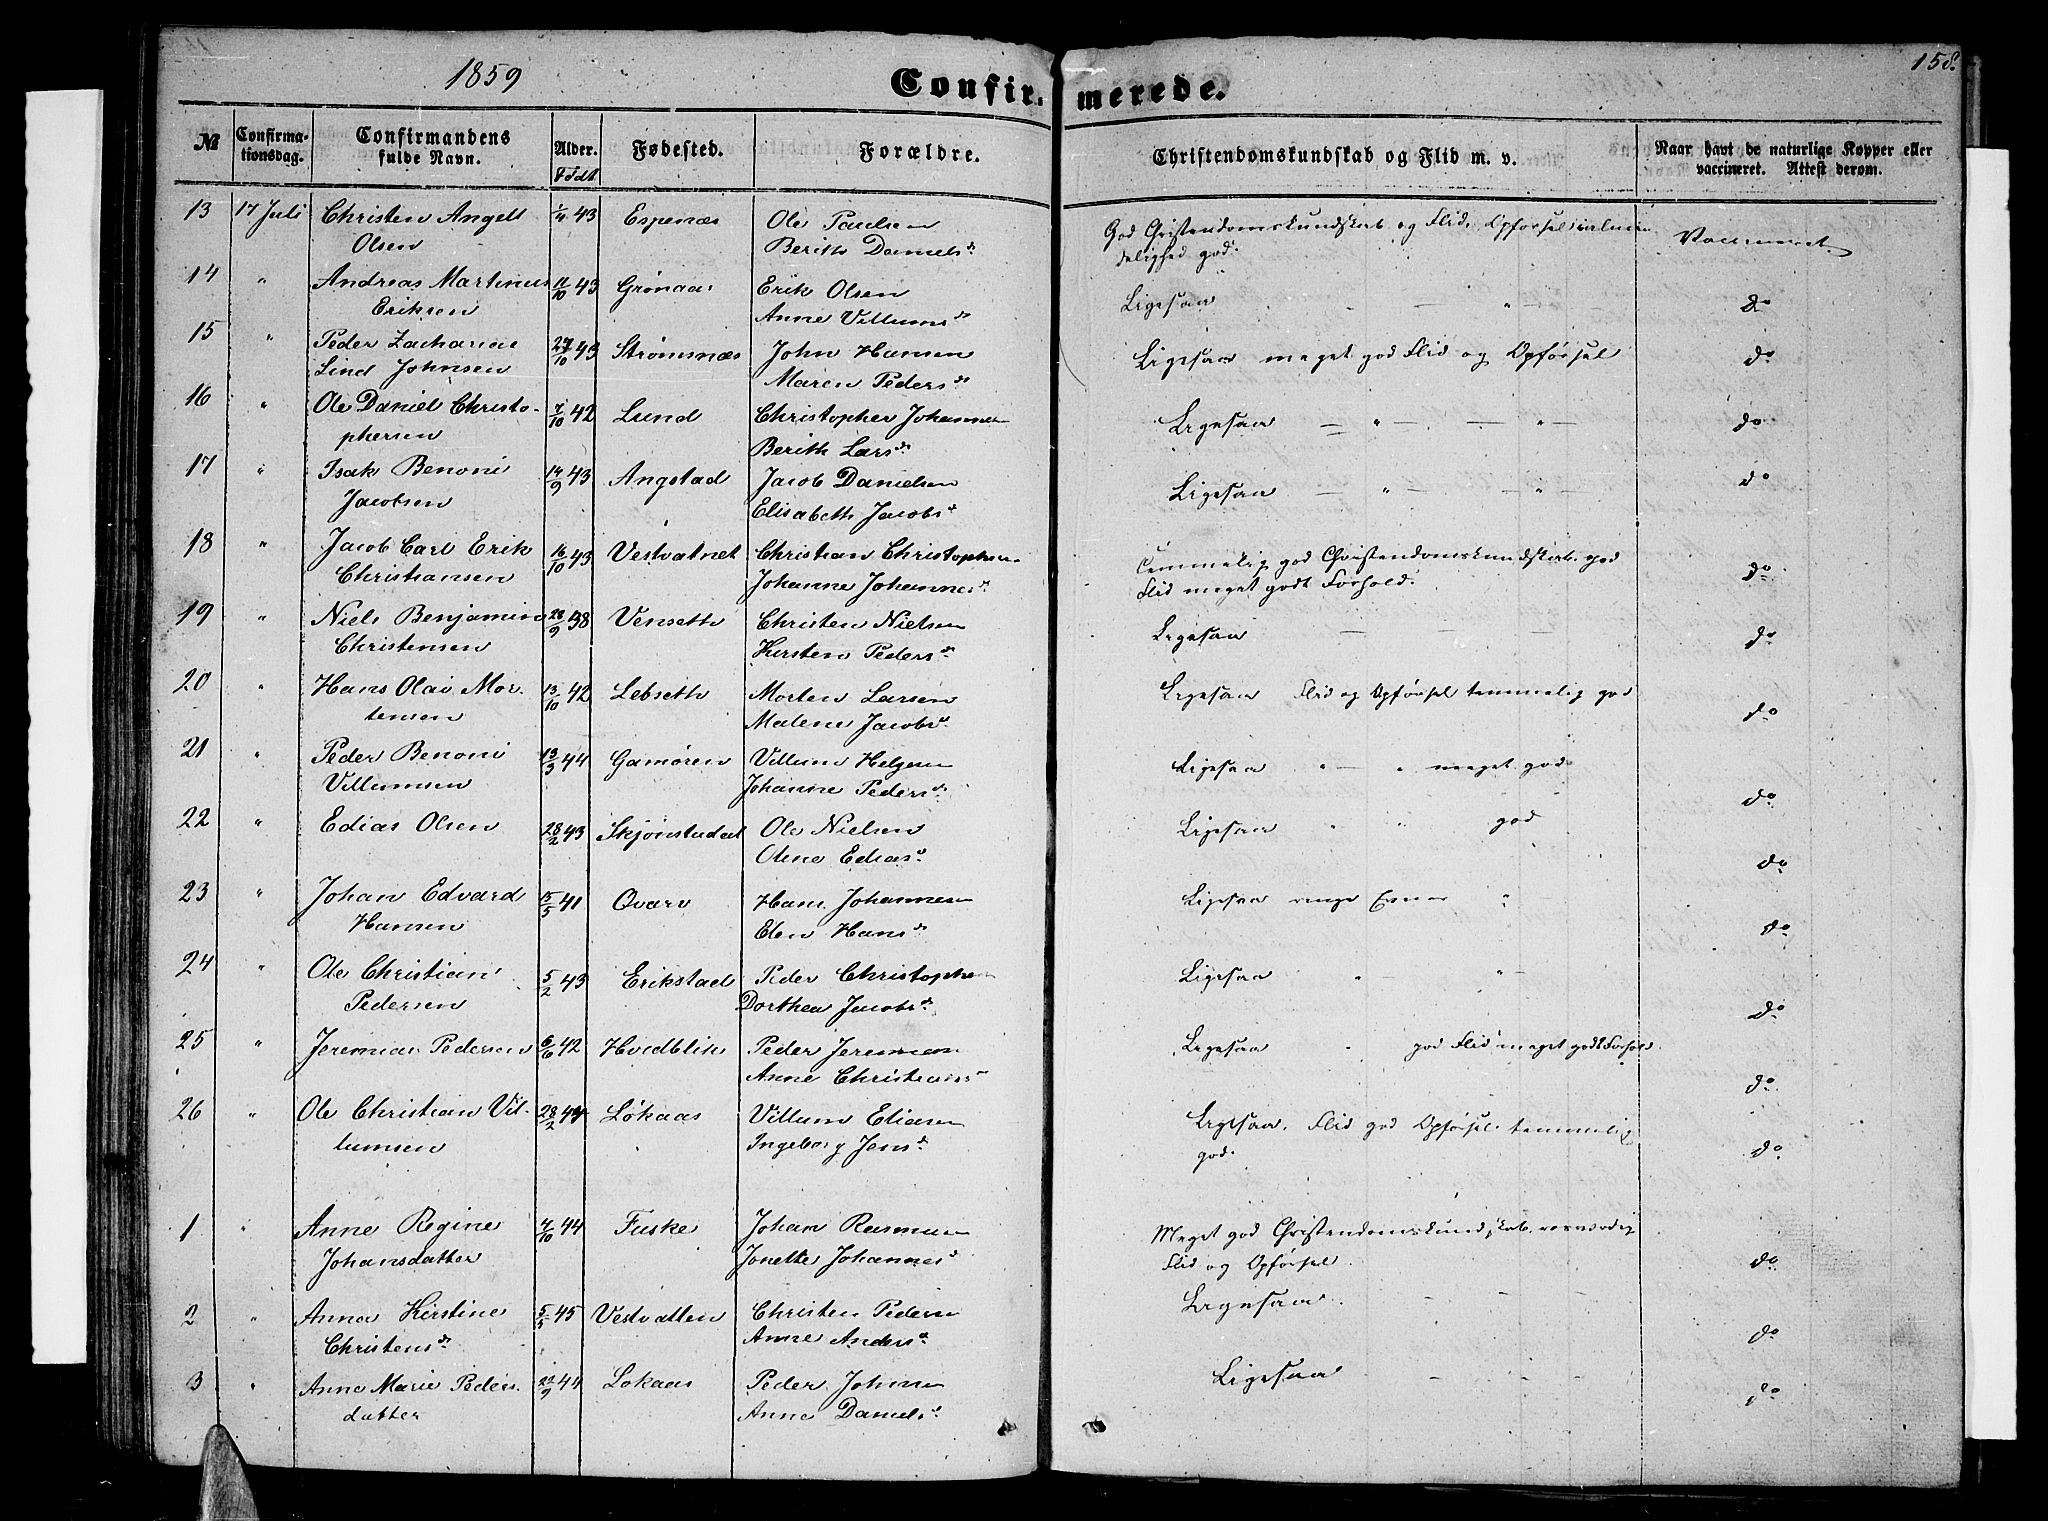 1859
Confirmerede.
158.
№ Confirmationsdag. Confirmandens fulde Navn. Alder. Født Fødested. Forældre. Christendomskundskab og Flid m. v. Naar havt de naturlige Kopper eller vaccineret. Attest derom.
13 17 Juli Christen Angell 43 Espenæs Ole Paulsen God Christendomskundskab og Flid, Opførsel
Olsen Berith Daniels d. delighed god. Vaccineret
14 " Andreas Martinus 11/10 43 Grønaas Erik Olsen Ligesaa — " — do
Eriksen Anne Villums d.
15 " Peder Zacharias 27/10 43 Strømsnæs John Hansen Ligesaa meget god Flid og Opførsel do
Lind Johnsen Maren Peders d.
16 " Ole Daniel Christo- 7/10 42 Lund Christopher Johannes Ligesaa — " — — " — do
phersen Berith Lars d.
17 " Isak Benoni 14/9 43 Angstad Jacob Danielsen Ligesaa — " — — " — do
Jacobsen Elisabeth Jacobs d.
18 " Jacob Carl Erik 16/10 43 Vestvatnet Christian Christophersen temmelig god Christendomskundskab. god
Christiansen Johanne Johannes d. Flid meget godt Forhold. do
19 " Niels Benjamin 28/9 38 Vensetth Christen Nielsen Ligesaa — — — do
Christensen Kirsten Peders d.
20 " Hans Olai Mor- 13/10 42 Lebsetth Morten Larsen Ligesaa Flid og Opførsel temmelig god
tensen Malene Jacobs d. do
21 " Peder Benoni 13/3 44 Gamøren Villum Helgesen Ligesaa " — " meget god
Villumsen Johanne Peders d. do
22 " Edias Olsen 28/2 43 Skjønstudal Ole Nielsen Ligesaa " " god
Oline Edias d. do
23 " Johan Edvard 15/5 41 Qvarv Hans Johannesen Ligesaa ringe Evner "
Hansen Elen Hans d. do
24 " Ole Christian 5/2 43 Erikstad Peder Christophersen Ligesaa " "
Pedersen Dorthea Jacobs d. do
25 " Jeremias Pedersen 6/6 42 Hvidblik Peder Jeremiasen Ligesaa " god Flid meget godt Forhold.
Anne Christians d. do
26 " Ole Christian Vil- 28/2 44 Løkaas Villum Eliasen Ligesaa, Flid god Opførsel temmelig
lumsen Ingeborg Jens d. god. do
1 " Anne Regine 4/10 44 Fuske Johan Rasmusen Meget god Christendomskundskab, rosværdig
Johansdatter Jonette Johannes d. Flid og Opførsel. do
2 " Anna Kirstine 5/3 45 Vestvatten Christen Pedersen Ligesaa. - -
Christens d. Anne Anders d. do
3 " Anne Marie Peders 22/9 44 Lokaas Peder Johnsen Ligesaa - -
datter Anne Daniels d. do